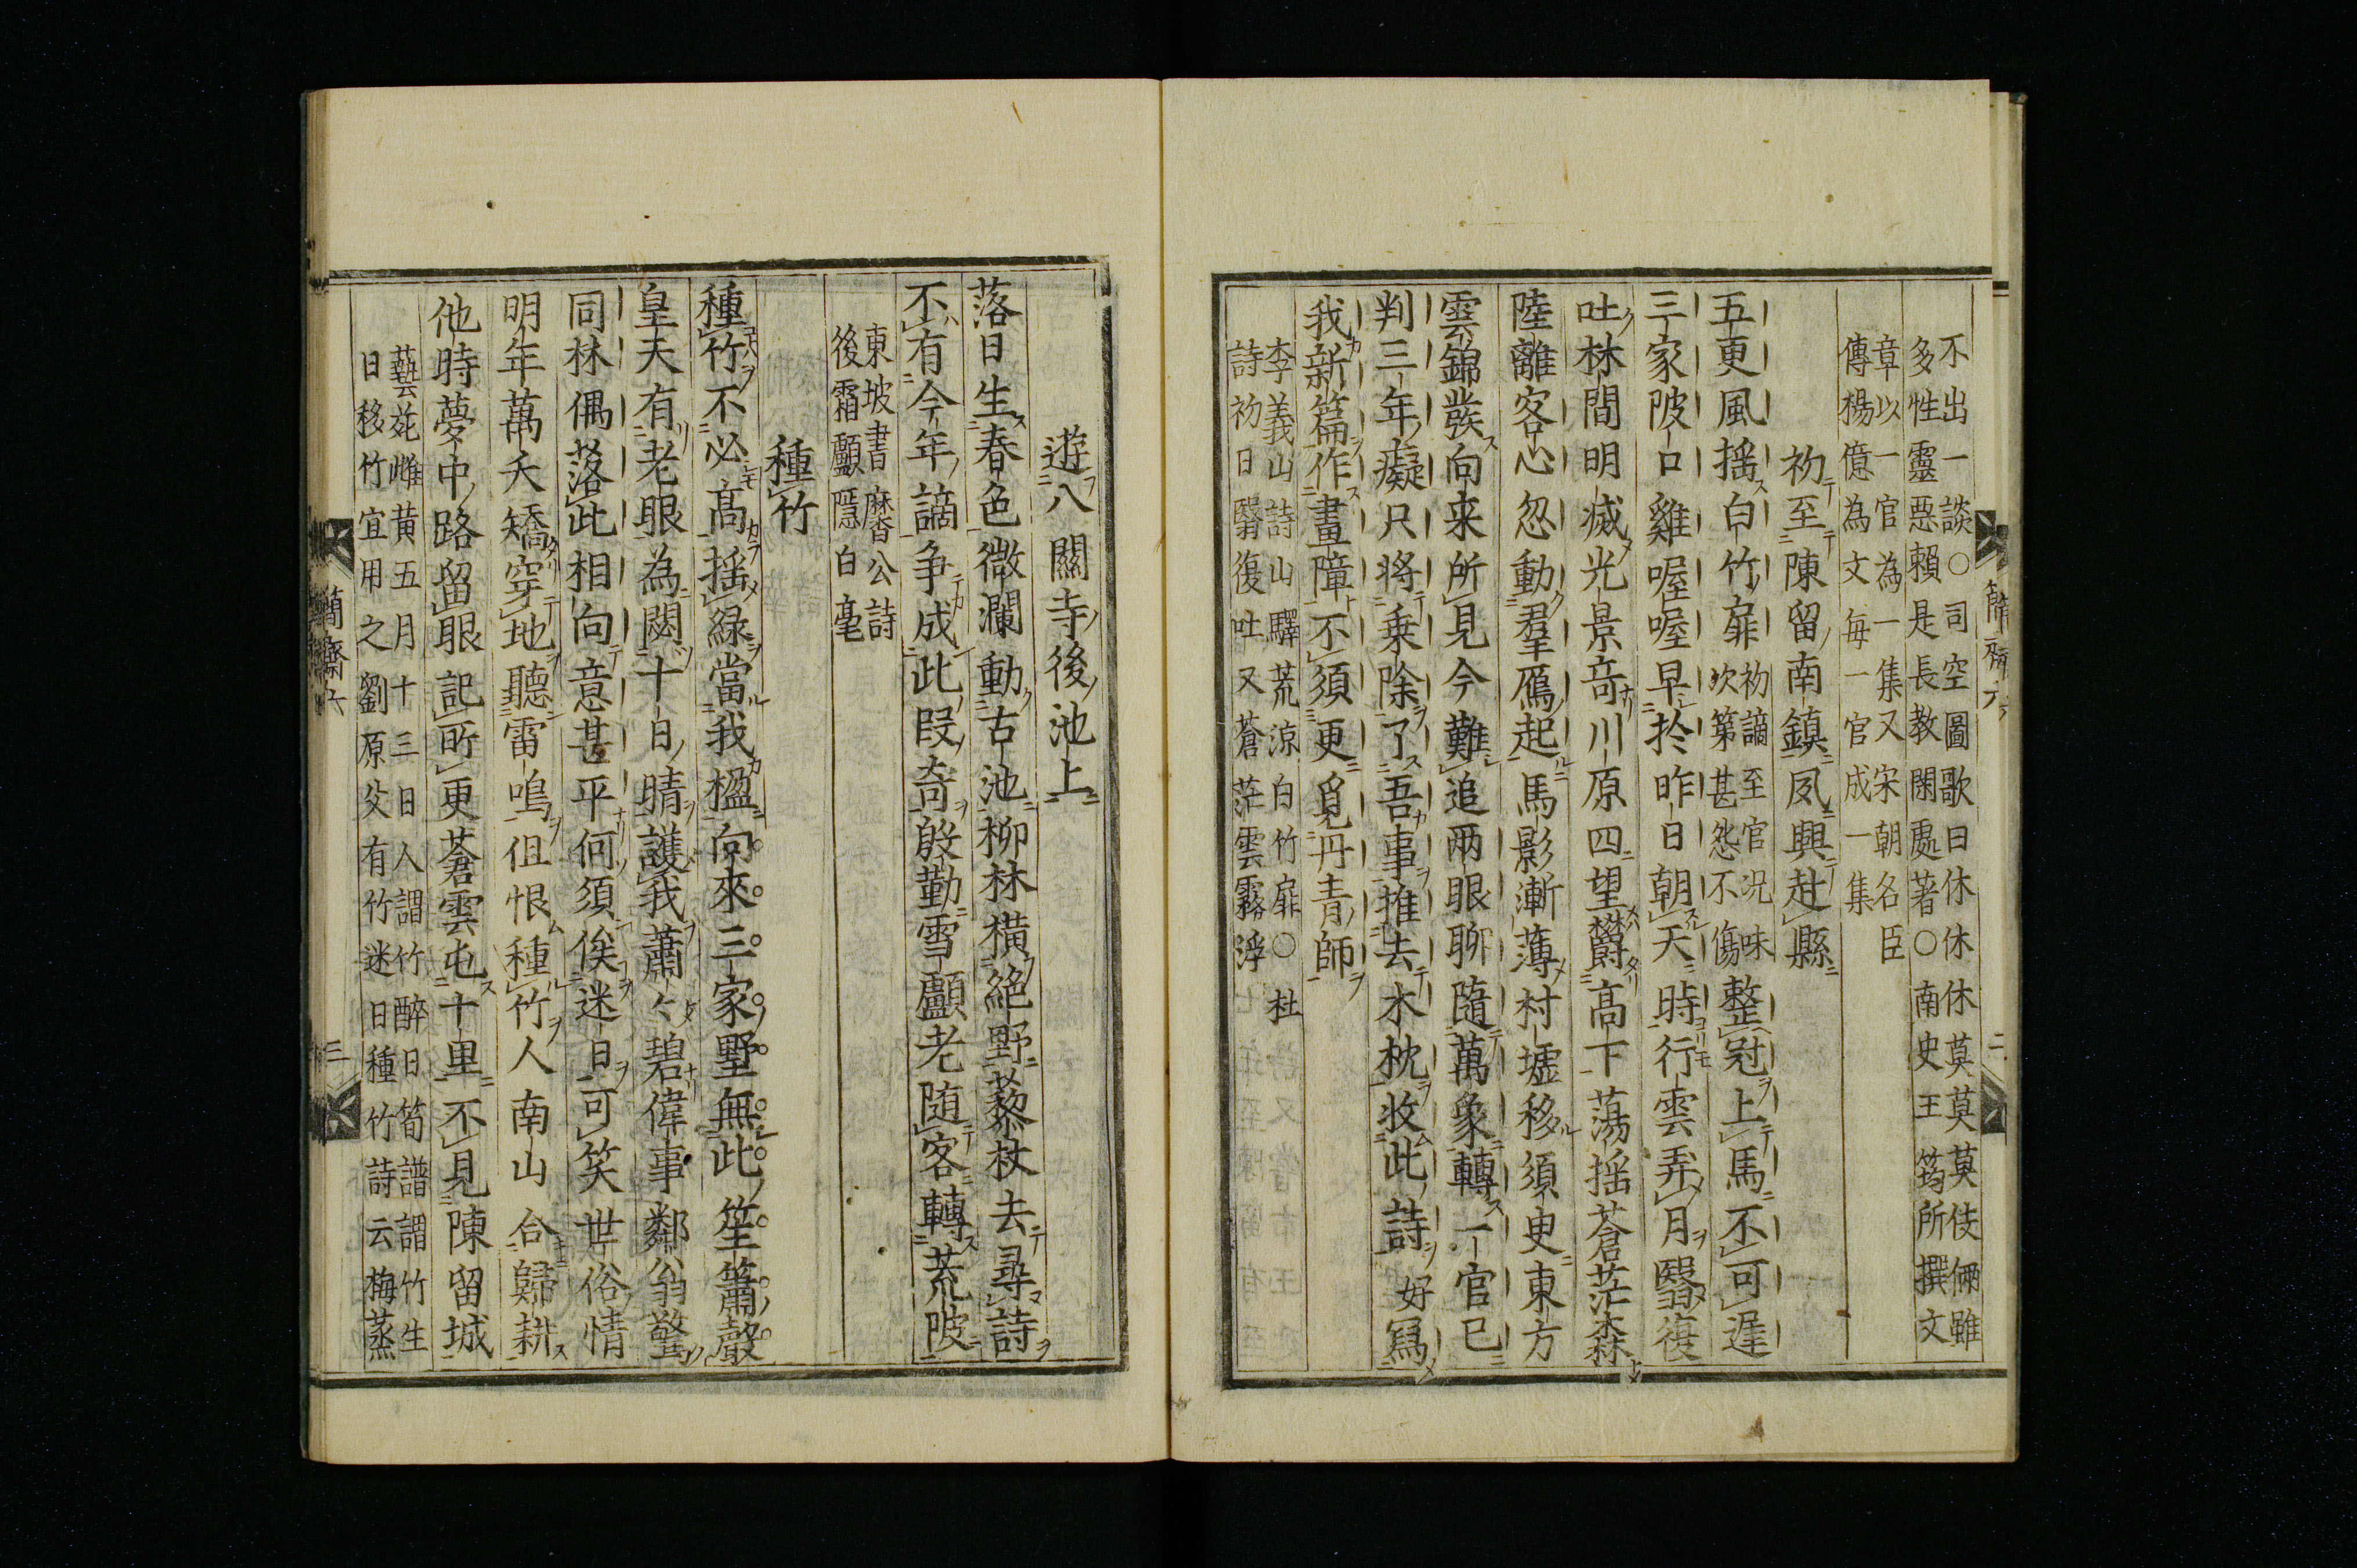 不出一談○司空圖歌曰休休休莫莫莫伎倆雖
多性靈惡賴是長教閑處著○南史王筠所撰文
章以一官為一集又宋朝名臣
傳楊億為文每一官成一集
初至陳留南鎮夙興赴縣
五更風揺白竹扉初謫至官况味
次第甚怨不傷整冠上馬不可遲
三家陂口雞喔喔早於昨日朝天時行雲弄月翳復
吐林間明滅光景奇川原四望欝高下蕩揺蒼茫森
陸離客心忽動羣鴈起馬影漸薄村墟移須臾東方
雲錦發向来所見今難追兩眼聊隨萬象轉一官已
判三年癡只将乗除了吾事推去木枕收此詩好冩
我新篇作畫障不須更覓丹青師
李義山詩山驛荒涼白竹扉○杜
詩初日翳復吐又蒼茫雲霧浮
簡齋六
二
遊八關寺後池上
落日生春色微瀾動古池柳林横絕野藜杖去尋詩
不有今年謫争成此段奇殷勤雪顱老随客轉荒陂
東坡書麿公詩
後霜顱隱白毫
種竹
種竹不必髙揺綠當我楹向來三家墅無此笙簫聲
皇天有老眼為閟十日晴護我蕭々碧偉事鄰翁驚
同林偶落此相向意甚平何須俟迷日可笑世俗情
明年萬夭矯穿地聽雷鳴但恨種竹人南山合歸耕
他時夢中路留眼記所更蒼雲屯十里不見陳留城
藝苑雌黄五月十三日人謂竹醉日筍譜謂竹生
日移竹宜用之劉原父有竹迷日種竹詩云梅蒸
簡齋六
三